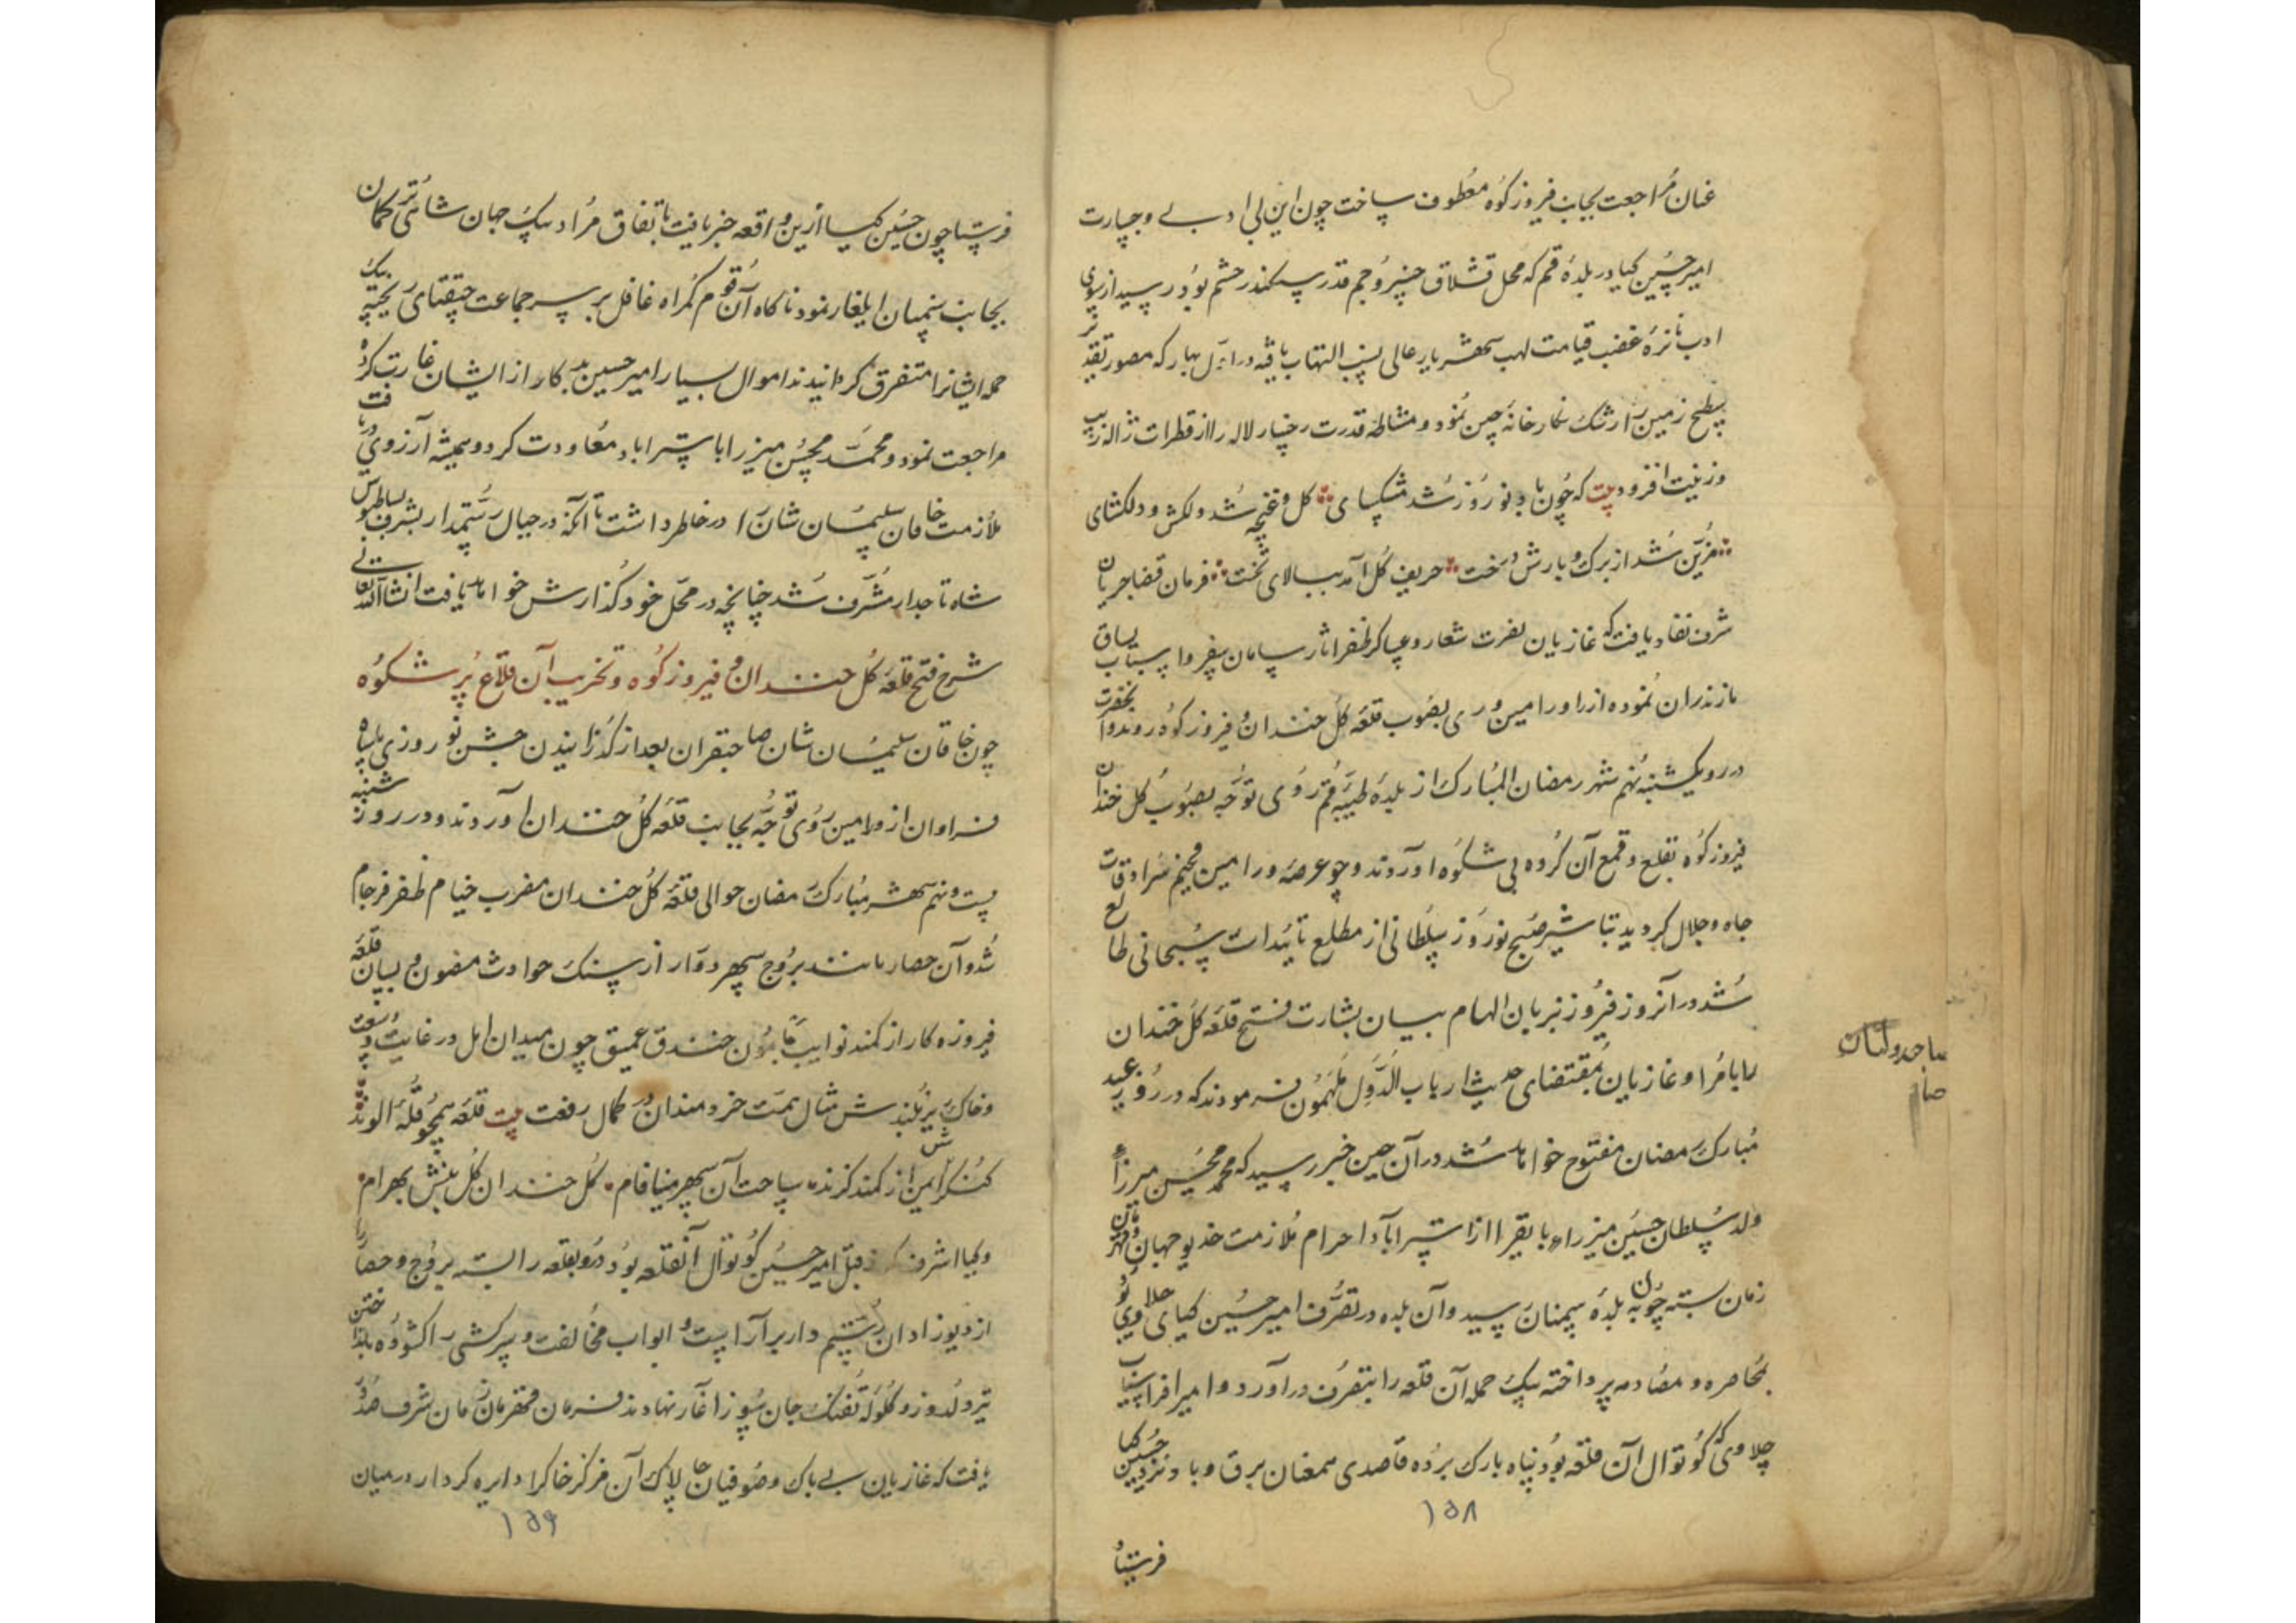 عنان مراجعت بجانب فیروزکوه معطوف ساخت چون این بی ادبی و جسارت
امیر حسین کیا در بلدهٔ قم که محل قشلاق خسرو جم قدر سکندر حشم بود رسید از سوی
ادب نائرهٔ غضب قیامت لهب شهریار عالی نسب التهاب یافته در اول بهار که مصور تقدیر
سطح زمین را رشک نگارخانهٔ چین نمود و مشاطهٔ قدرت رخسار لاله را از قطرات ژاله زیب
و زینت افزود بیت که چون باد نوروز شد مشکسای گل و غنچه شد دلکش و دلکشای
مزین شد از برک و بارش درخت حریف گل آمد ببالای تخت فرمان قضا جریان
شرف نفاد یافت که غازیان نصرت شعار و عساکر ظفر اثار سامان سفر و اسباب یساق
مازندران نموده از راه ورامین و ری بصوب قلعه کل خندان و فیروزکوه روند و آنحضرت
در رو یکشنبه نهم شهر رمضان المبارک از بلدهٔ طیبهٔ قم روی توجه بصوب کل خندان
فیروزکوه بقلع و قمع آن کروه بی شکوه آوردند و چو عرصه ورامین مخیم سرادقات
جاه و جلال کردید تباشیر صبح نوروز سلطانی از مطلع تائیدات سبحانی طالع
شد در آنروز فیروز بزبان الهام بیان بشارت فتح قلعه کل خندان
را بامرا و غازیان بمقتضای حدیث ارباب الدول ملهمون فرمودند که در روز عید
مبارک رمضان مفتوح خواهد شد در آن حین خبر رسید که محمد محسن میرزا
ولد سلطان حسین میرزاء بایقرا از استراباد احرام ملازمت خدیو جهان و قهرمان
زمان بسته چون به بلدهٔ سمنان رسید و آن بلده در تصرف امیر حسین کیای چلاوی بود
بمحاصره و مصادمه پرداخته بیک حمله آن قلعه را بتصرف درآورد و امیر افراسیاب
چلاوی که کوتوال آن قلعه بود پناه بارک برده قاصدی همعنان برق و باد نزد حسین کیا
۱۵۸
فرستاد
فرستاد چون حسین کیا از ین واقعه خبر یافت باتفاق مراد بیک جهان شاهی ترکمان
بجانب سمنان ایلغار نمود ناکاه آن قوم کمراه غافل بر سر جماعت چقتای ریخته بیک
حمله ایشانرا متفرق کردانیدند اموال بسیار امیر حسین بد کار از ایشان غارت کرده
مراجعت نمود و محمد محسن میرزا باستراباد معاودت کرد و همیشه آرزوی دریافت
ملازمت خاقان سلیمان شان را در خاطر داشت تا آنکه در جبال رستمدار بشرف بساطبوس
شاه تاجدار مشرف شد چنانچه در محل خود کذارش خواهد یافت انشاالله تعالی
شرح فتح قلعه کل خندان و فیروزکوه و تخریب آن قلاع پر شکوه
چون خاقان سلیمان شان صاحبقران بعد از کذرانیدن جشن نوروزی با سپاه
فراوان از ورامین روی توجه بجانب قلعه کل خندان آوردند و در روز شنبه
بیست و نهم شهر مبارک رمضان حوالی قلعه کل خندان مضرب خیام ظفر فرجام
شد و آن حصار مانند بروج سپهر دوار از سنک حوادث مصون و بسان قلعه
فیروزه کار از کمند نوایب مامون خندق عمیق چون میدان امل در غایت وسعت
و خاک ریز بلندش مثال همت خردمندان در کمال رفعت بیت قلعه همچو قله الوند
کنکرش ایمن از کمند کزند ساحت آن سپهر مینا فام کل خندان کلبنش بهرام
و کیا اشرف که از قبل امیر حسین کوتوال آنقلعه بود در و بقلعه را بسته بروج و حصار را
از دیوزادان رستم دار برآراست و ابواب مخالفت و سرکشی را کشوده بانداختن
تیر دلدوز و کلوله تفنک جان سوز آغاز نهادند فرمان قهرمان زمان شرف صدور
یافت که غازیان بی باک و صوفیان چالاک آن مرکز خاکرا دایره کردار در میان
۱۵۹